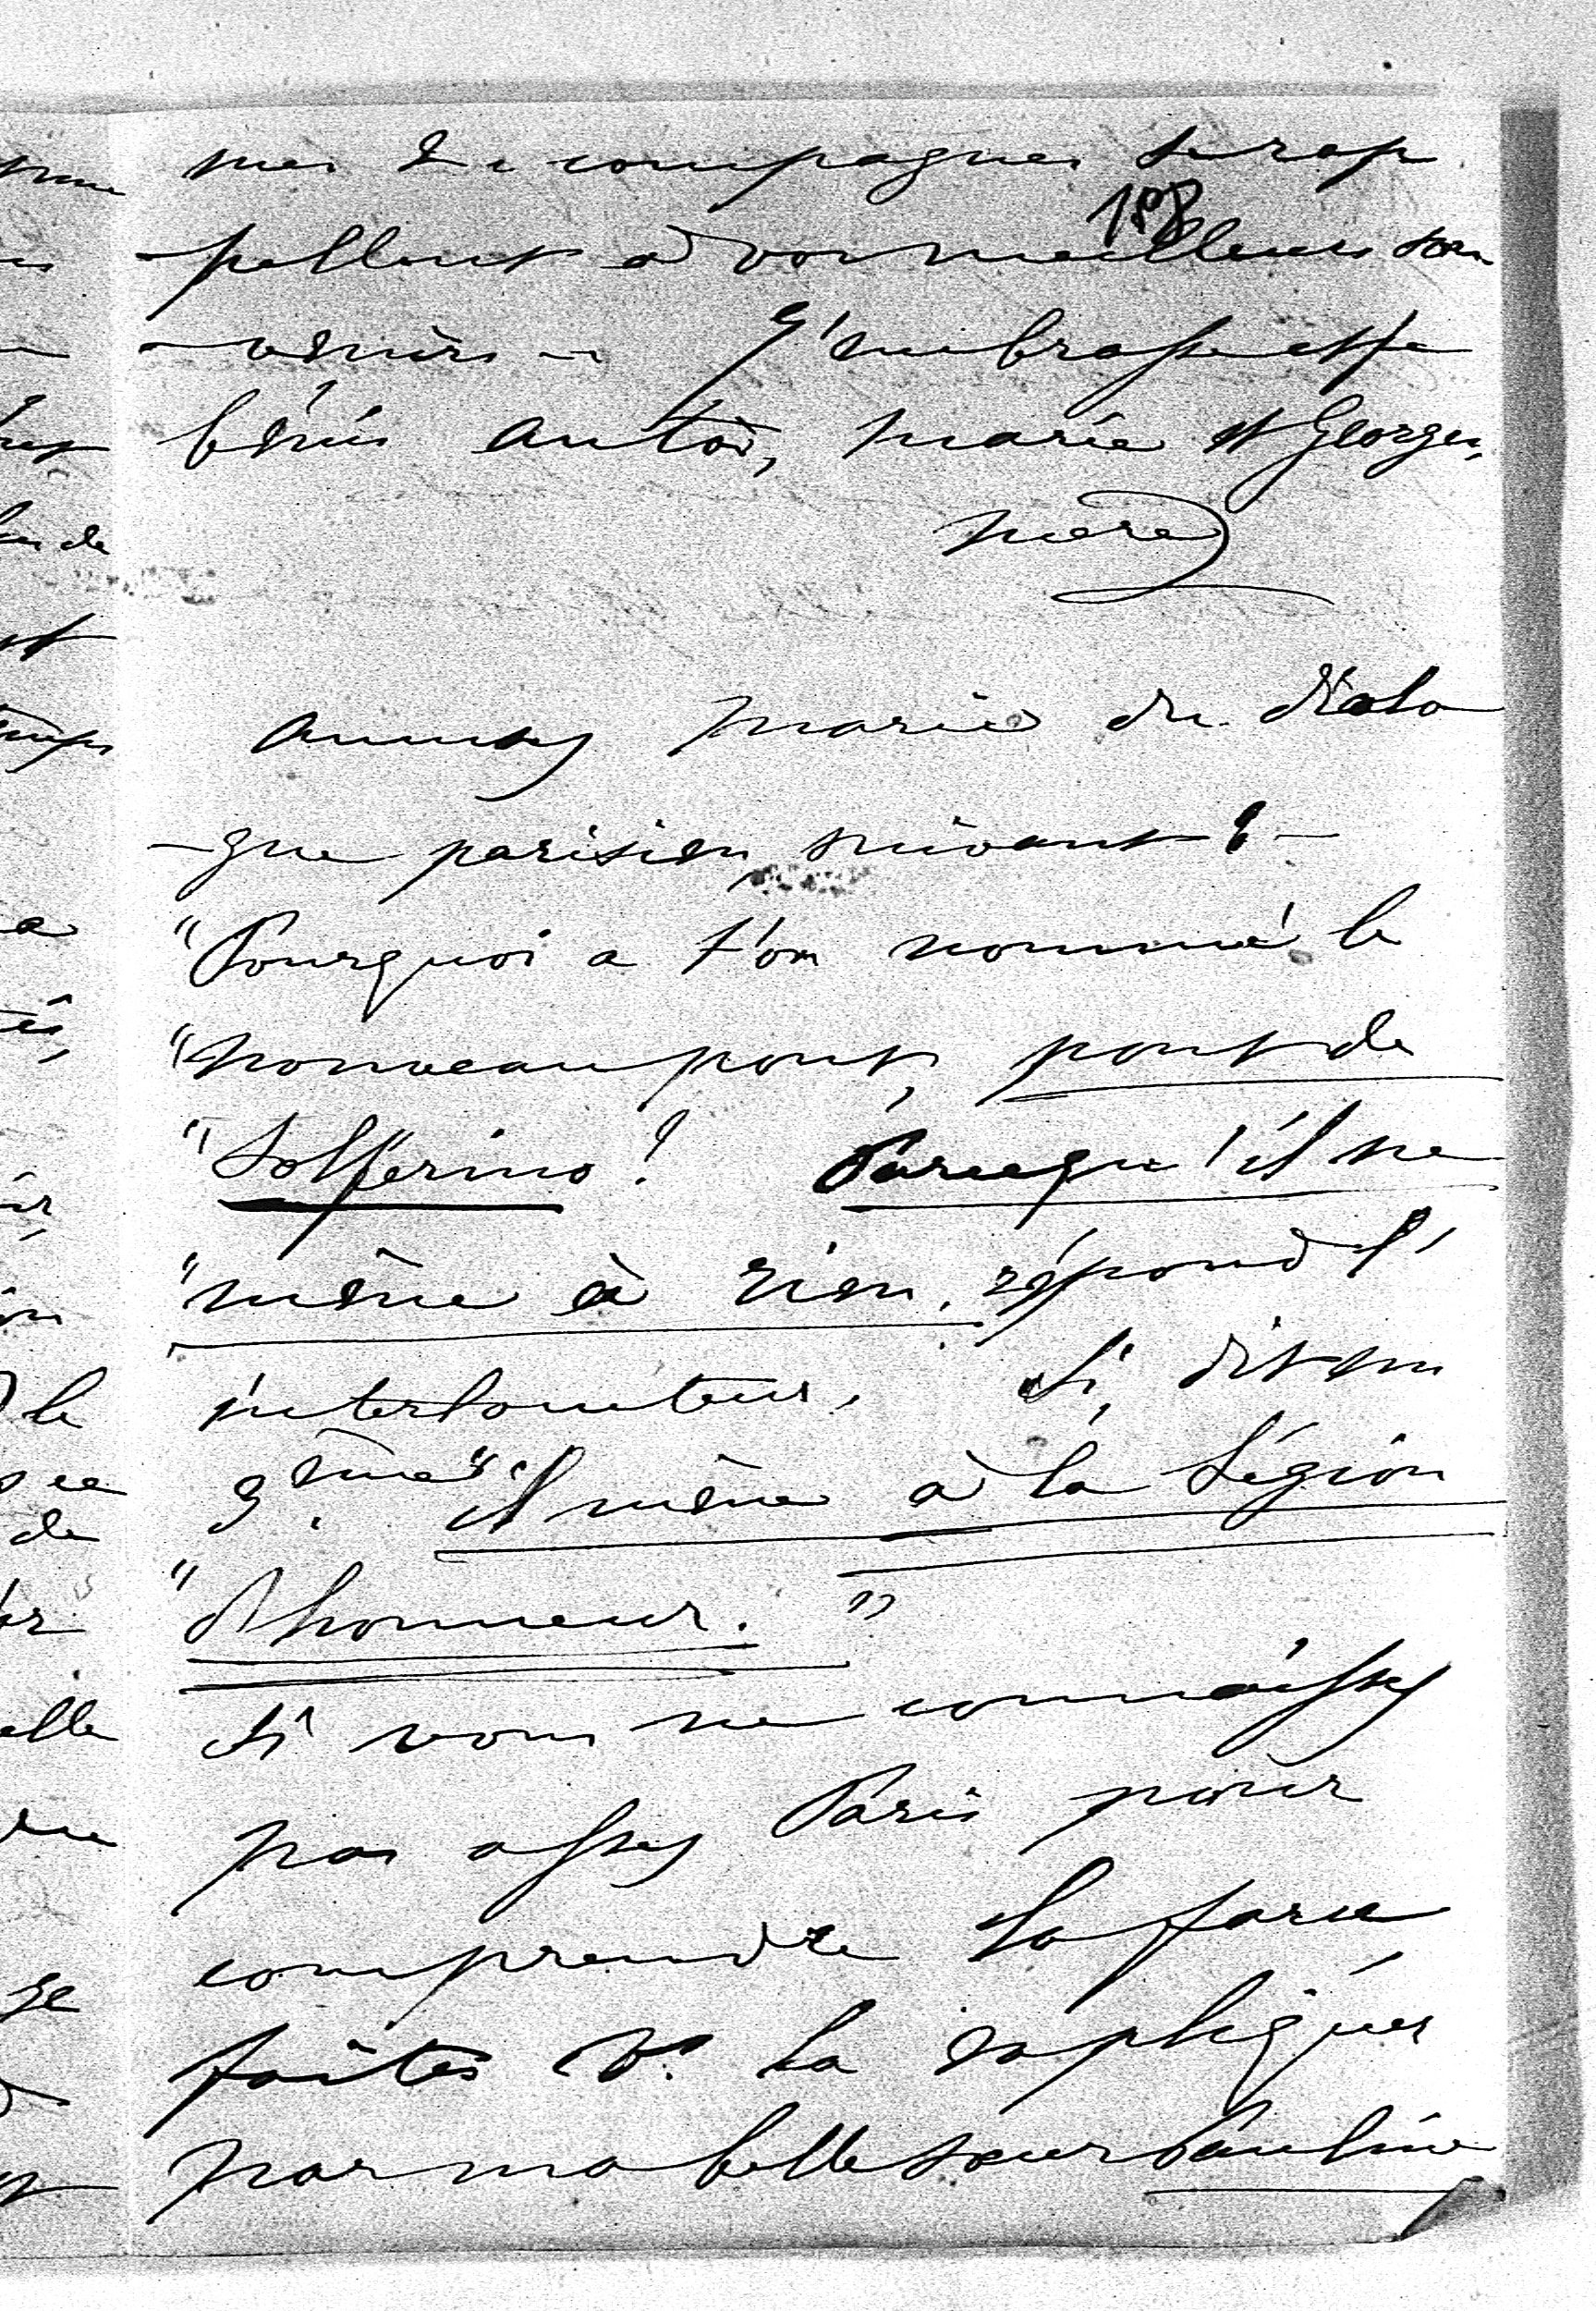 mes & compagnes se rap
198
-pellent à vos meilleurs sou
-venirs - J'embrasse et je
bénis Antoi, Marie et Georges,
mère
Amusez Marie du dialo
-gue parisien suivant : -
"Pourquoi a t'on nommé le
"nouveau pont, pont de
"Solferino ? Parcequ'il ne
"mène à rien, répond l'
interlocuteur. Si, dit un
3ème "il mène à la Légion
"d'honneur. "
Si vous ne connaissez
pas assez Paris pour
comprendre la farce
faites v. la expliquer
par ma belle soeur Pauline